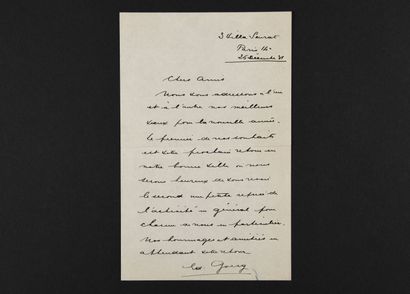 3 Villa Seurat
Paris 14e
Chers Amis
Nous vous adressons à l'un
et à l'autre nos meilleurs
vœux pour la nouvelle année.
Le premier de nos souhaits
est votre prochain retour en
notre bonne ville où nous
serons heureux de vous revoir
le second une petite reprise de
l'activité en général pour
chacun de nous en particulier.
Nos hommages et amitiés en
attendant votre retour
Ed. Goerg